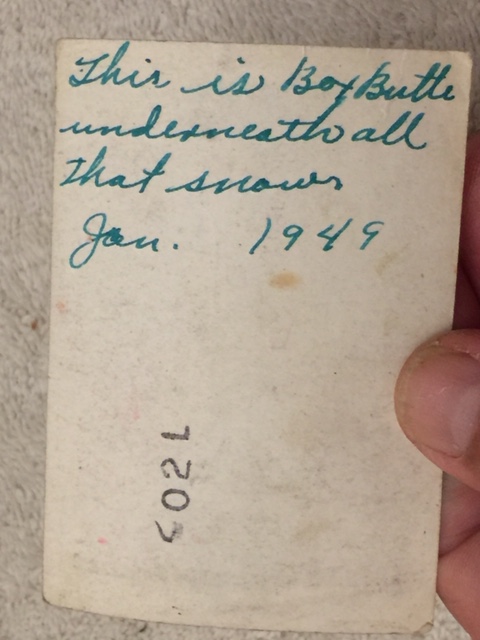 This is Box Butte
underneath all
that snow
Jan. 1949